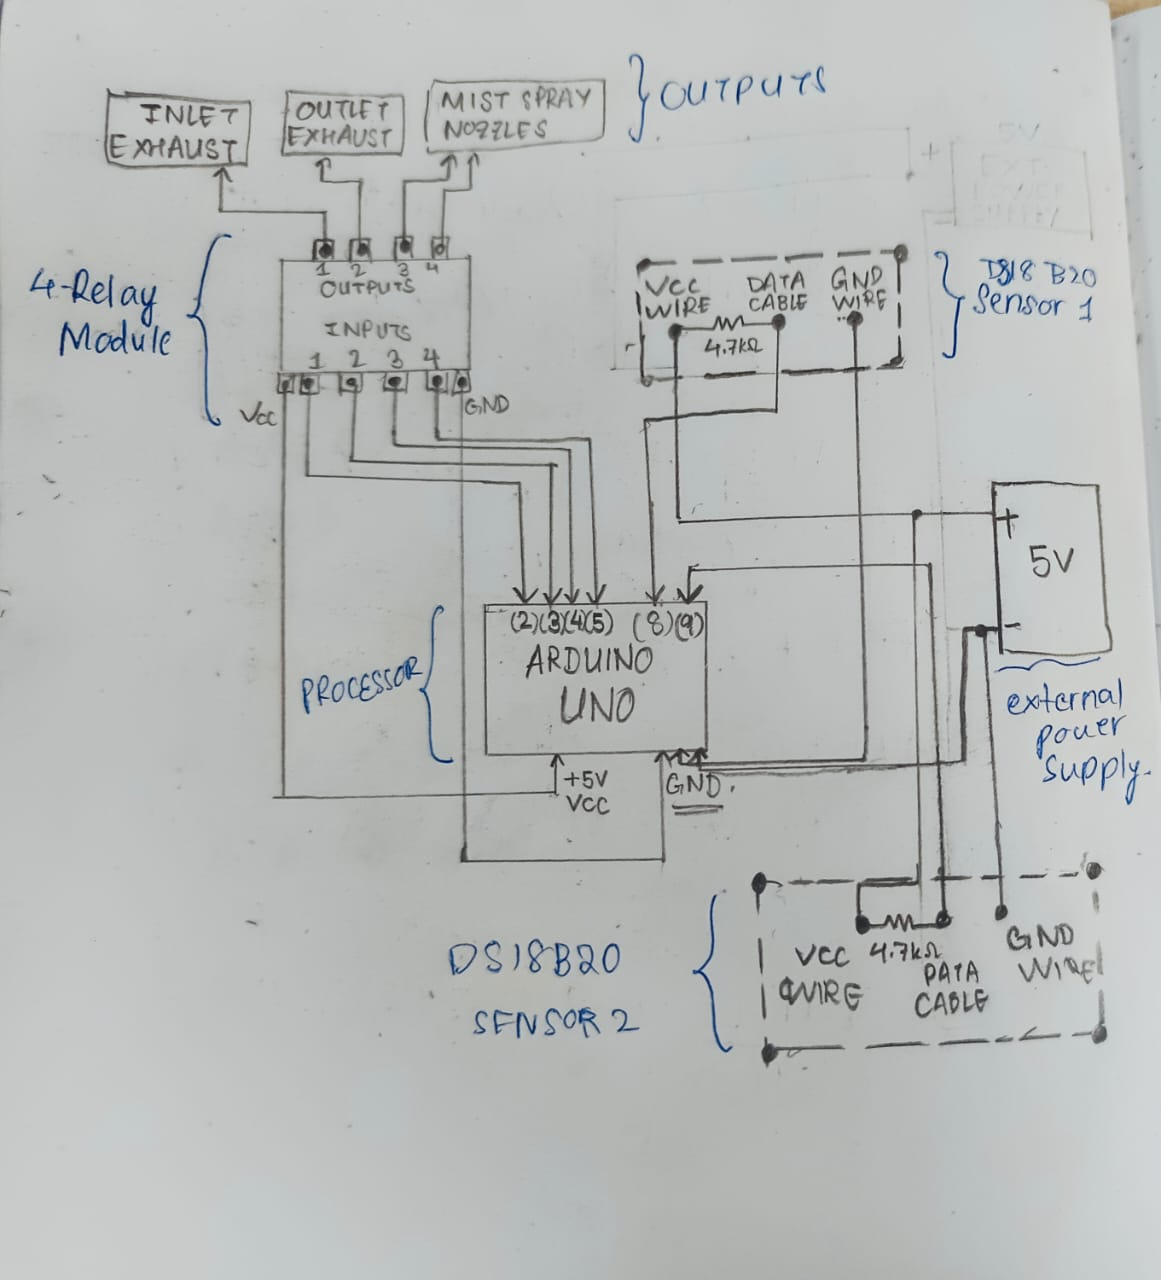 INLET
EXHAUST
OUTLET
EXHAUST
MIST SPRAY
NOZZLES
OUTPUTS
5V
EXT.
POWER
SUPPLY
+
4-Relay
Module
1 2 3 4
OUTPUTS
INPUTS
1 2 3 4
Vcc
GND
VCC
WIRE
DATA
CABLE
GND
WIRE
4.7kΩ
DS18 B20
Sensor 1
+
5V
-
external
power
supply.
PROCESSOR
(2)(3)(4)(5) (8)(9)
ARDUINO
UNO
+5V
VCC
GND.
DS18B20
SENSOR 2
VCC
WIRE
4.7kΩ
DATA
CABLE
GND
WIRE